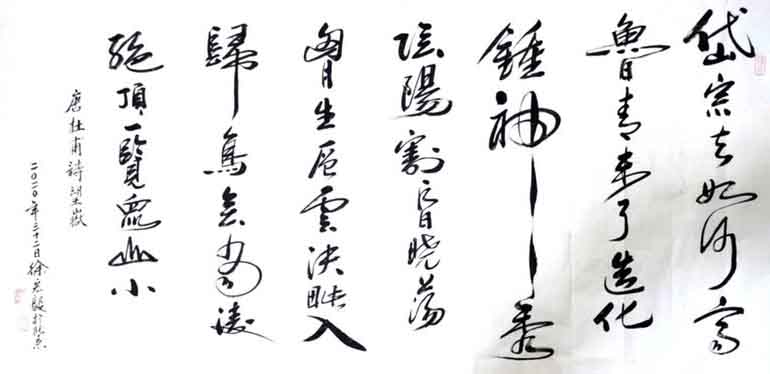 岱宗夫如何齊
魯青未了造化
鍾神秀
陰陽割昏晓蕩
胷生层雲決眦入
歸鳥會當凌
絕頂一覽眾山小
唐杜甫詩望嶽
二〇二〇年三十二日徐於北京